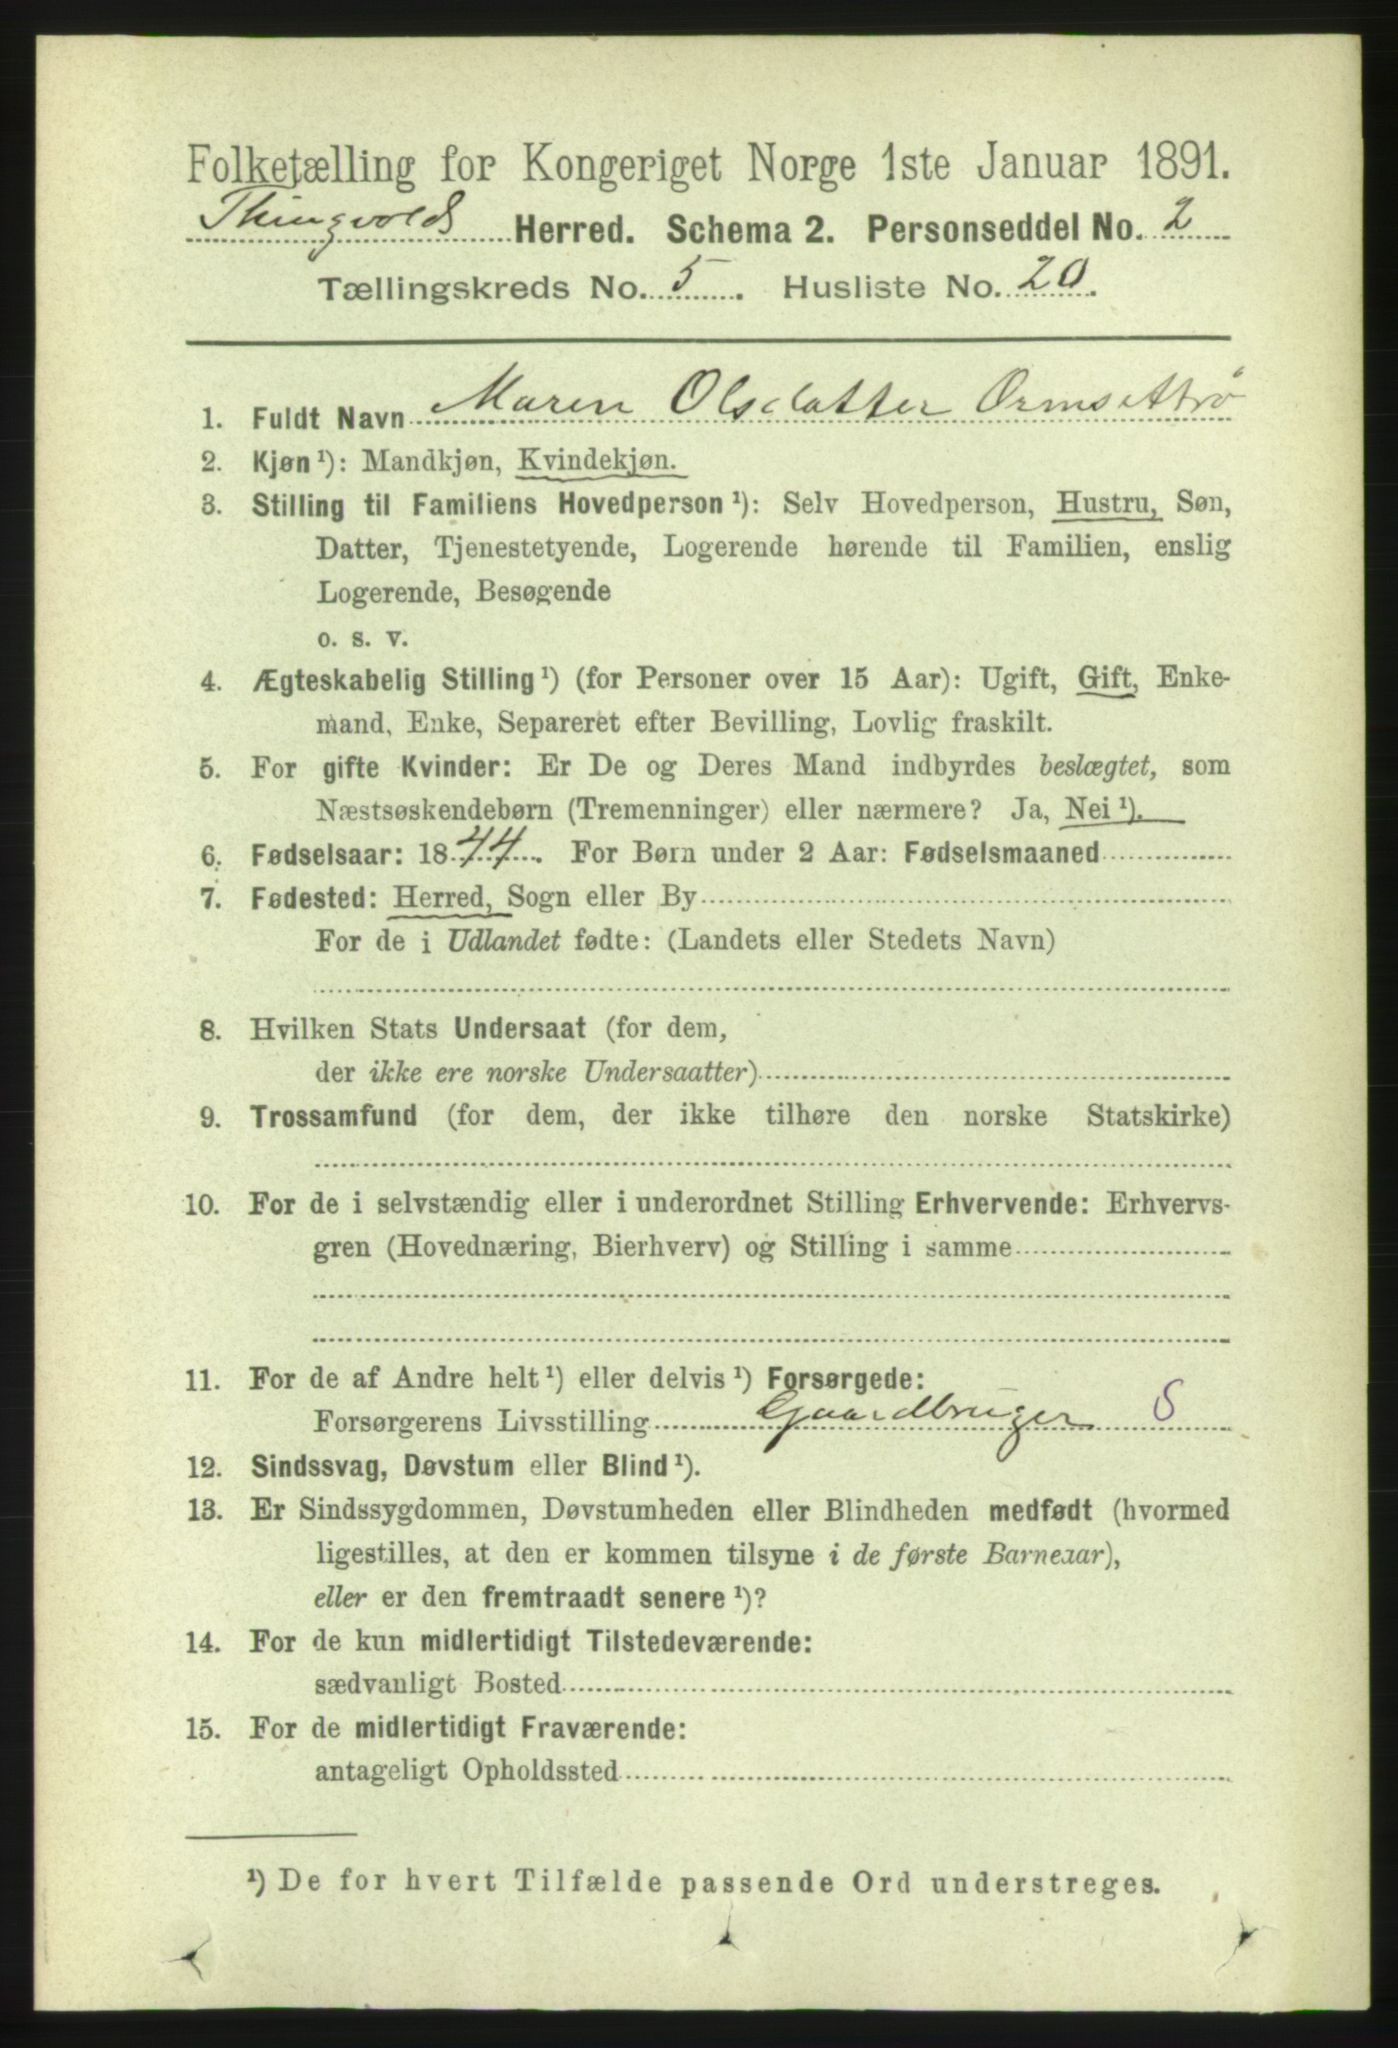 Folketælling for Kongeriget Norge 1ste Januar 1891.
Thingvolds Herred. Schema 2. Personseddel No. 2
Tællingskreds No. 5. Husliste No. 20.
1. Fuldt Navn Maren Olsdatter Ormsettrö
2. Kjøn ¹): Mandkjøn, Kvindekjøn.
3. Stilling til Familiens Hovedperson ¹): Selv Hovedperson, Hustru, Søn,
Datter, Tjenestetyende, Logerende hørende til Familien, enslig
Logerende, Besøgende
o. s. v.
4. Ægteskabelig Stilling ¹) (for Personer over 15 Aar): Ugift, Gift, Enke-
mand, Enke, Separeret efter Bevilling, Lovlig fraskilt.
5. For gifte Kvinder: Er De og Deres Mand indbyrdes beslægtet, som
Næstsøskendebørn (Tremenninger) eller nærmere? Ja, Nei ¹).
6. Fødselsaar: 1844. For Børn under 2 Aar: Fødselsmaaned
7. Fødested: Herred, Sogn eller By
For de i Udlandet fødte: (Landets eller Stedets Navn)
8. Hvilken Stats Undersaat (for dem,
der ikke ere norske Undersaatter)
9. Trossamfund (for dem, der ikke tilhøre den norske Statskirke)
10. For de i selvstændig eller i underordnet Stilling Erhvervende: Erhvervs-
gren (Hovednæring, Bierhverv) og Stilling i samme
11. For de af Andre helt ¹) eller delvis ¹) Forsørgede:
Forsørgerens Livsstilling Gaardbruger S
12. Sindssvag, Døvstum eller Blind ¹).
13. Er Sindssygdommen, Døvstumheden eller Blindheden medfødt (hvormed
ligestilles, at den er kommen tilsyne i de første Barneaar),
eller er den fremtraadt senere ¹)?
14. For de kun midlertidigt Tilstedeværende:
sædvanligt Bosted
15. For de midlertidigt Fraværende:
antageligt Opholdssted
¹) De for hvert Tilfælde passende Ord understreges.